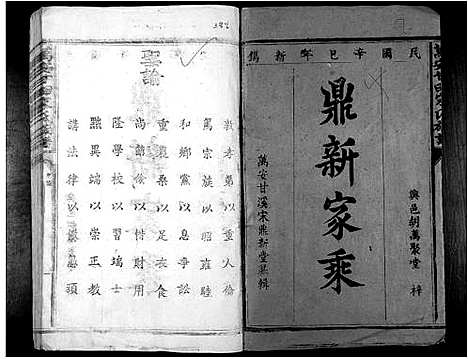 民國辛巳年新鐫
興邑胡萬聚堂 梓
鼎新家乘
萬安甘溪宋鼎新堂纂輯
聖諭
敦孝弟以重人倫
篤宗族以昭雍睦
和鄉黨以息爭訟
重農桑以足衣食
尚節儉以惜財用
隆學校以端士習
黜異端以崇正教
講法律以